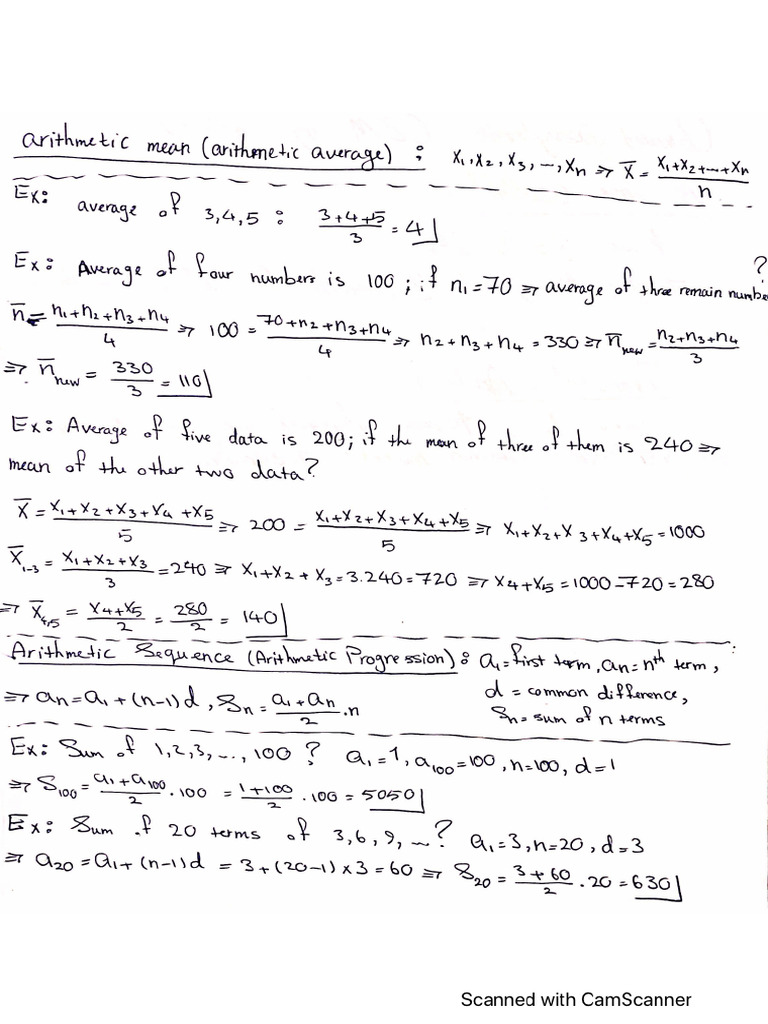 arithmetic mean (arithmetic average) : x₁,x₂,x₃,…,xₙ ⇒ x̄ = (x₁+x₂+…+xₙ)/n
Ex: average of 3,4,5 : (3+4+5)/3 = 4
Ex: Average of four numbers is 100 ; if n₁=70 ⇒ average of three remain number?
n̄ = (n₁+n₂+n₃+n₄)/4 ⇒ 100 = (70+n₂+n₃+n₄)/4 ⇒ n₂+n₃+n₄ = 330 ⇒ n̄new = (n₂+n₃+n₄)/3
⇒ n̄new = 330/3 = 110
Ex: Average of five data is 200; if the mean of three of them is 240 ⇒
mean of the other two data?
x̄ = (x₁+x₂+x₃+x₄+x₅)/5 ⇒ 200 = (x₁+x₂+x₃+x₄+x₅)/5 ⇒ x₁+x₂+x₃+x₄+x₅=1000
x̄₁₋₃ = (x₁+x₂+x₃)/3 = 240 ⇒ x₁+x₂+x₃=3.240=720 ⇒ x₄+x₅=1000-720=280
⇒ x̄₄,₅ = (x₄+x₅)/2 = 280/2 = 140
Arithmetic Sequence (Arithmetic Progression) : a₁=first term, aₙ=nth term,
⇒ aₙ=a₁+(n-1)d , Sₙ = (a₁+aₙ)/2 . n d = common difference,
Sₙ= sum of n terms
Ex: Sum of 1,2,3,…,100 ? a₁=1, a₁₀₀=100, n=100, d=1
⇒ S₁₀₀ = (a₁+a₁₀₀)/2 . 100 = (1+100)/2 . 100 = 5050
Ex: Sum of 20 terms of 3,6,9,…? a₁=3, n=20, d=3
⇒ a₂₀=a₁+(n-1)d = 3+(20-1)×3=60 ⇒ S₂₀ = (3+60)/2 . 20 = 630
Scanned with CamScanner